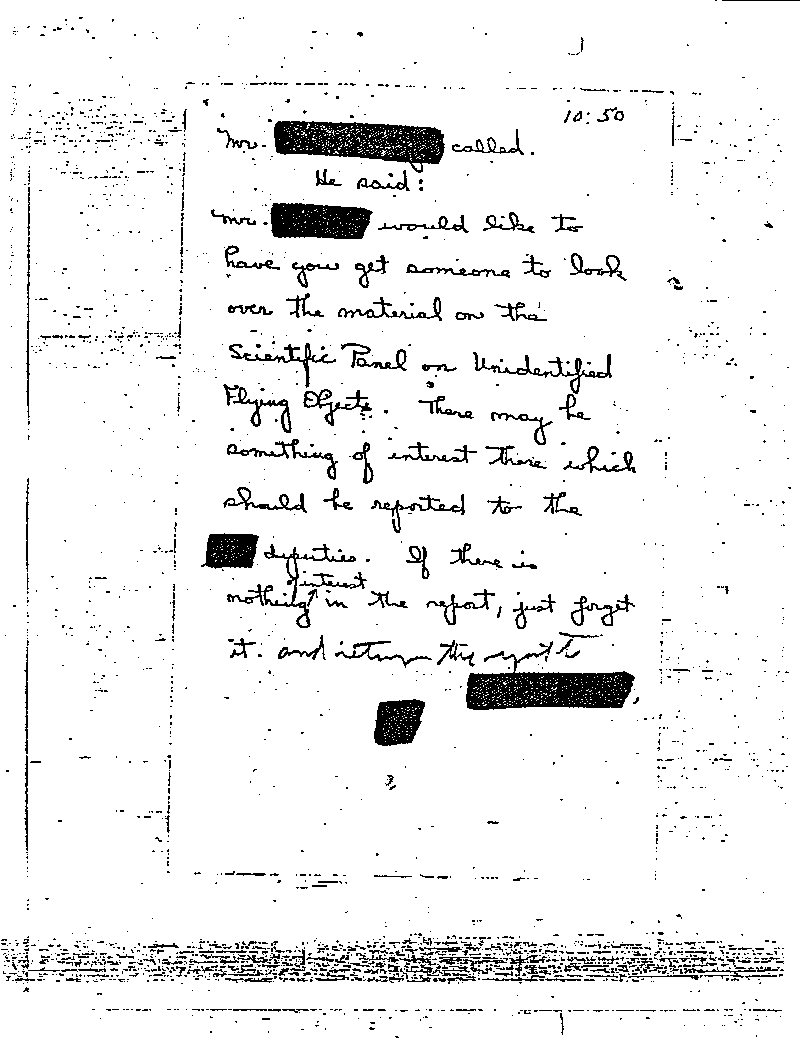 10:50
Mr. called.
He said:
Mr. would like to
have you get someone to look
over the material on the
Scientific Panel on Unidentified
Flying Objects. There may be
something of interest there which
should be reported to the
deputies. If there is
of interest
nothing in the report, just forget
it. and return the report to